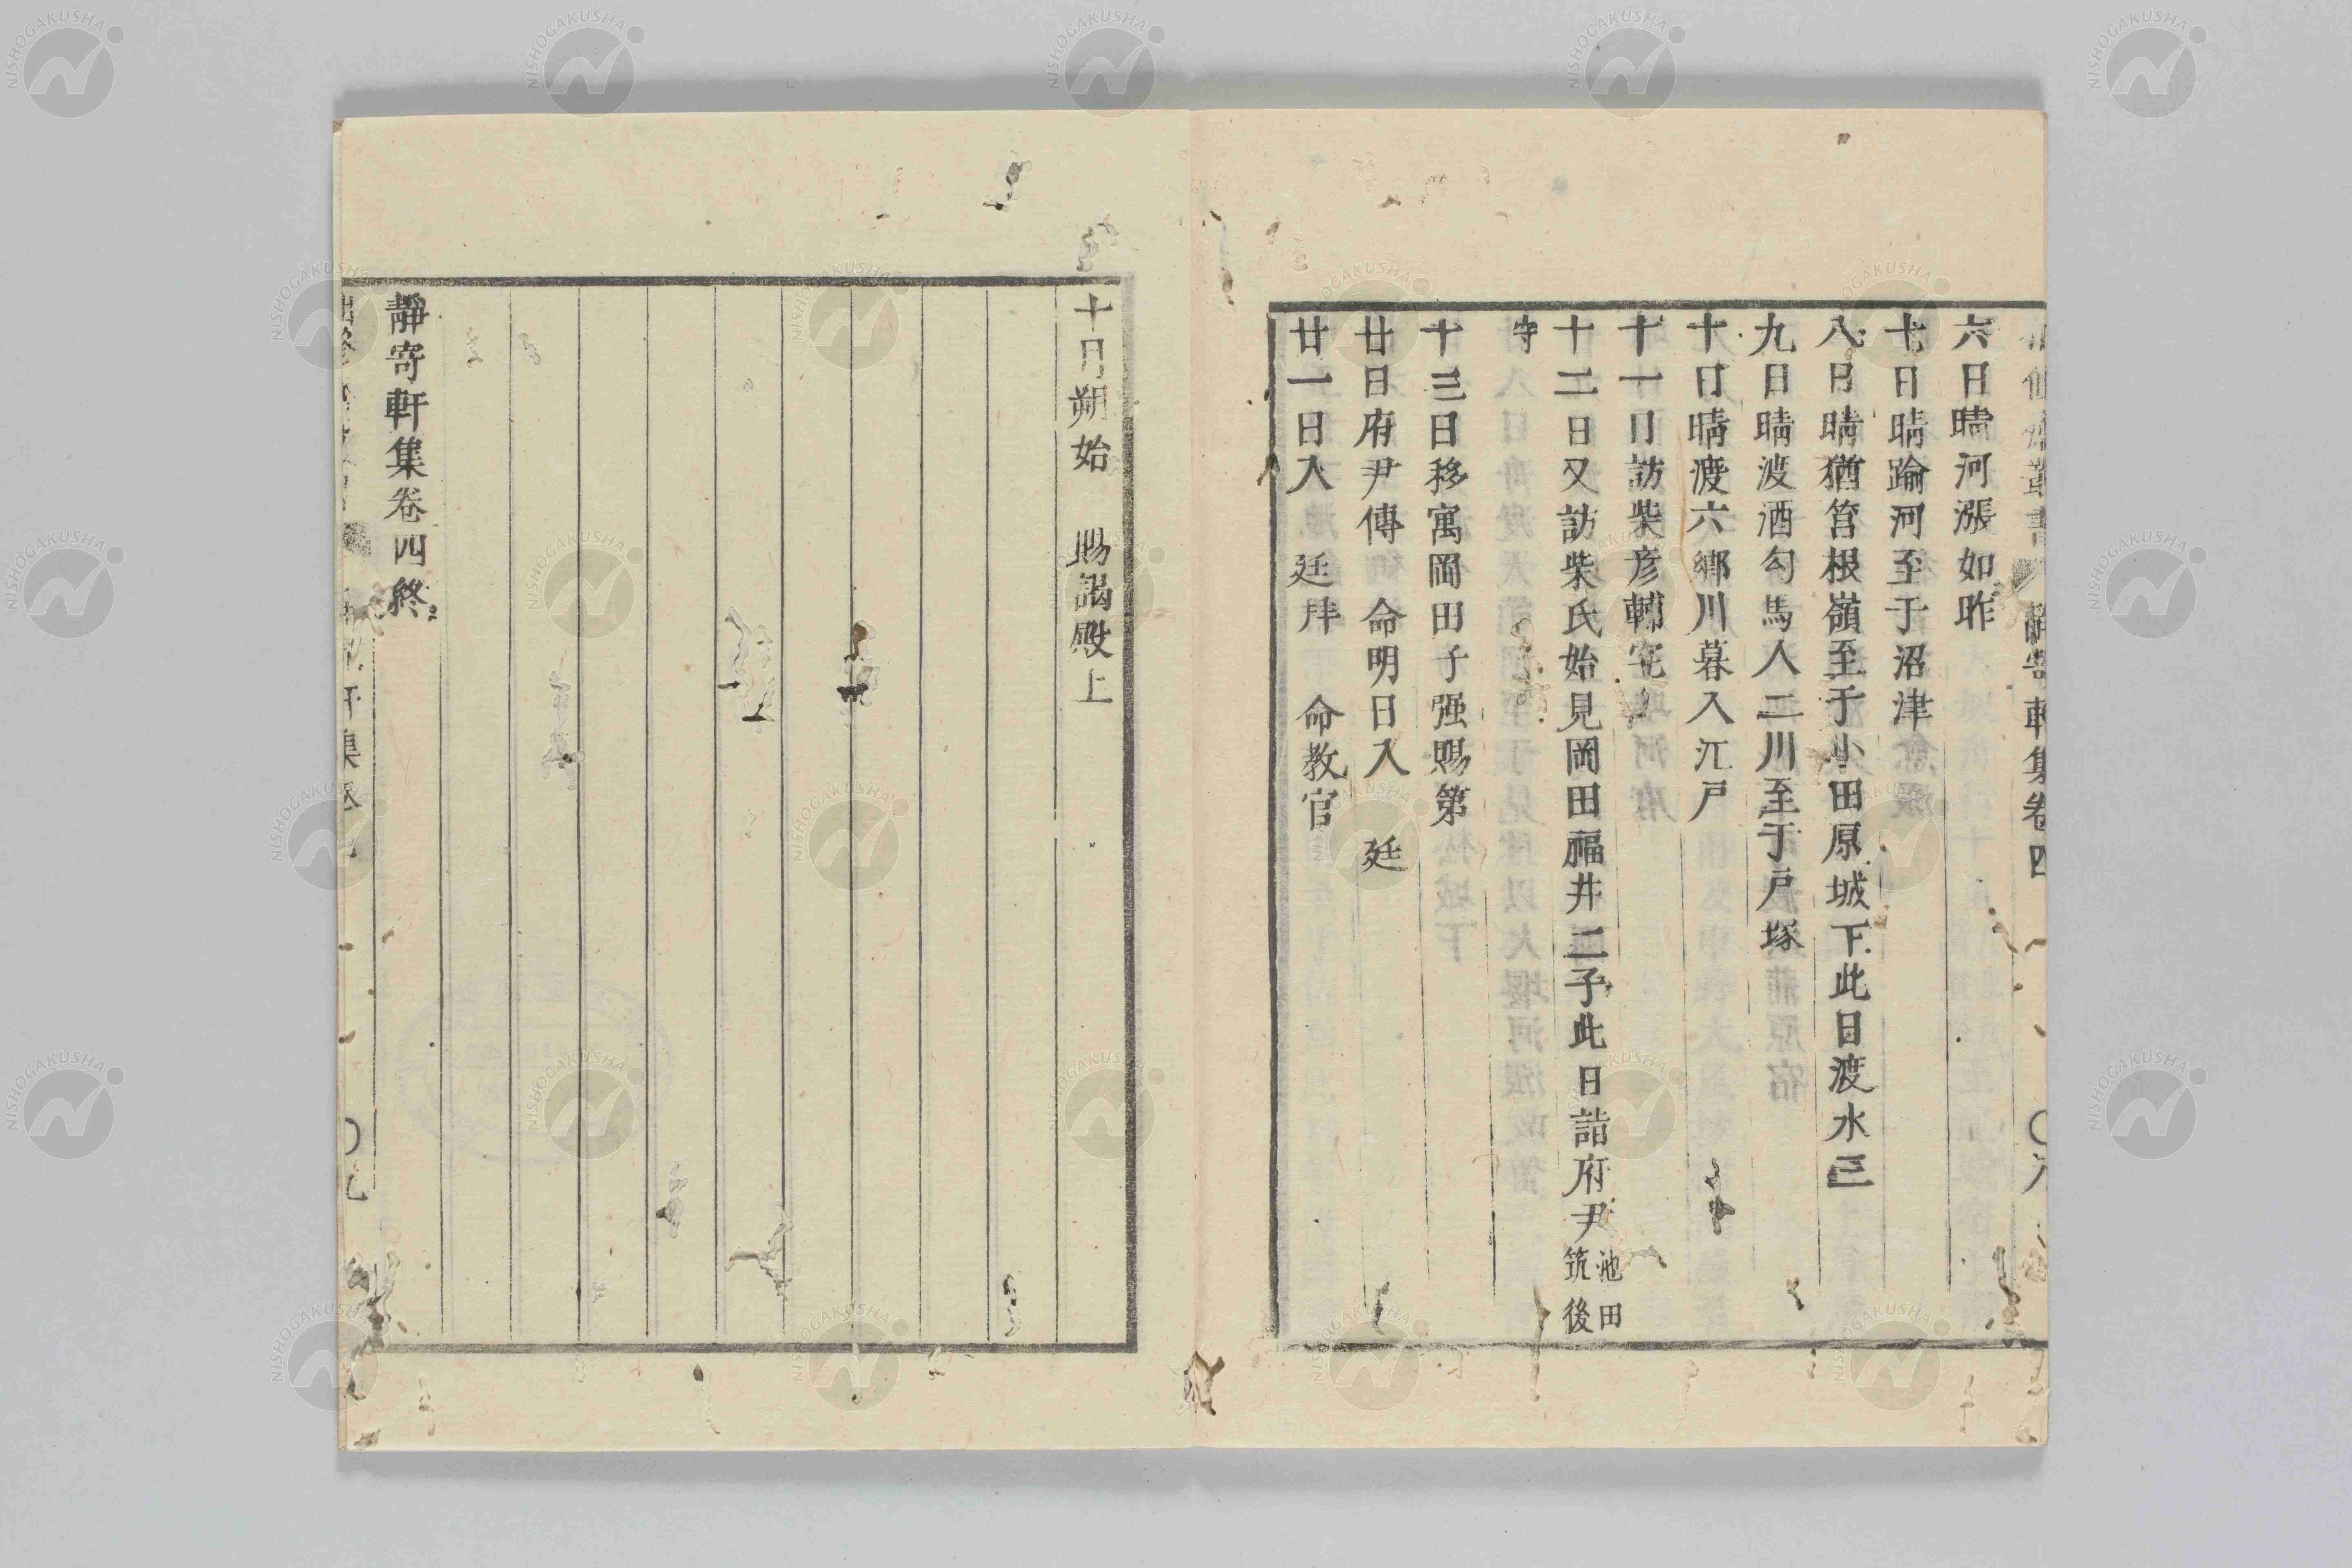 靜寄軒集卷四
六日晴河漲如昨
七日晴踰河至于沼津
八日晴猶筥根嶺至于小田原城下此日渡水三
九日晴渡酒匂馬入二川至于戸塚
十日晴渡六鄉川暮入江戸
十一日訪柴彥輔宅
十二日又訪柴氏始見岡田福井二子此日詣府尹池田筑後
守
十三日移寓岡田子强賜第
廿日府尹傳 命明日入 廷
廿一日入 廷拜 命教官
十月朔始 賜謁殿上
靜寄軒集卷四終
NISHOGAKUSHA